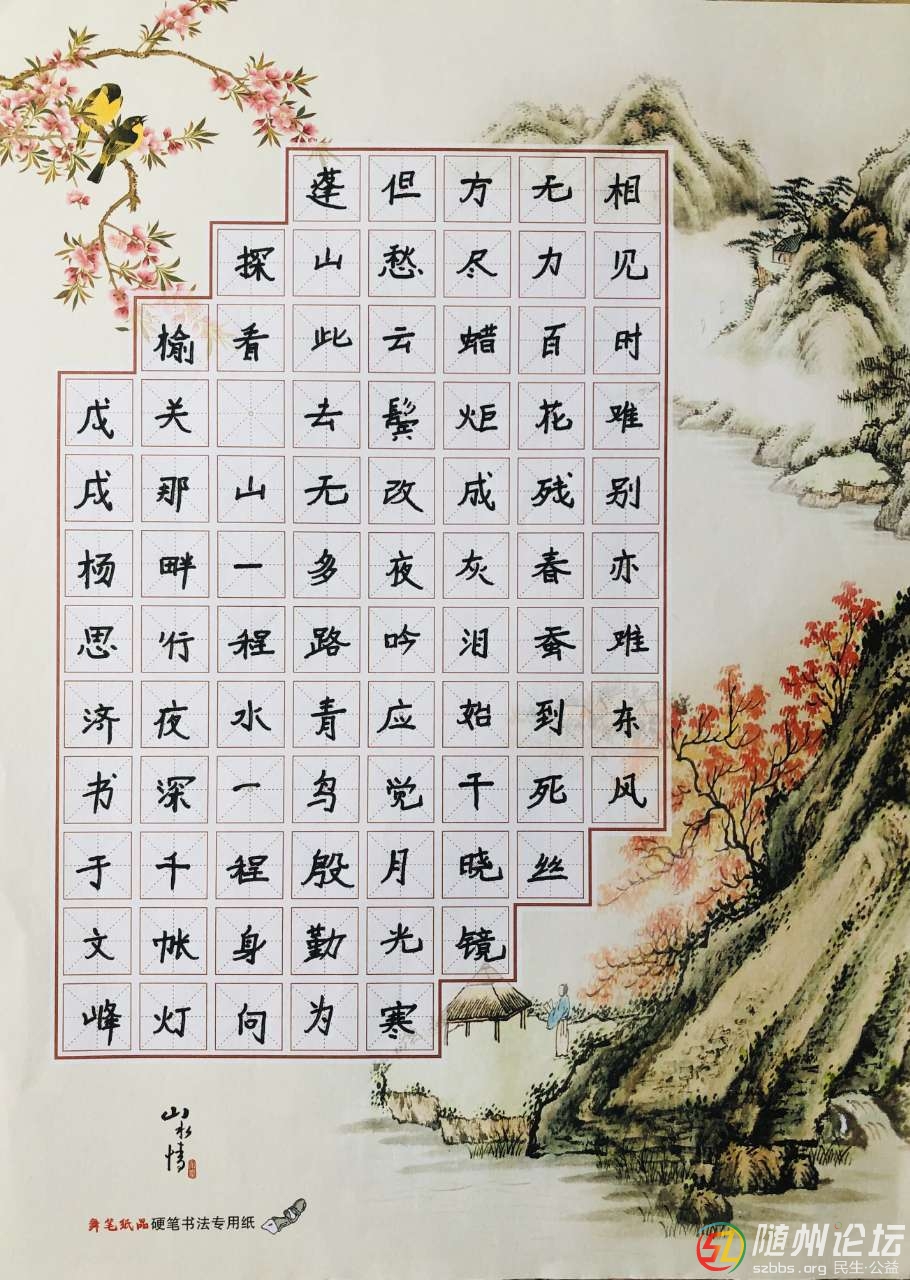 相见时难别亦难东风
无力百花残春蚕到死丝
方尽蜡炬成灰泪始干晓镜
但愁云鬓改夜吟应觉月光寒
蓬山此去无多路青鸟殷勤为
探看 山一程水一程身向
榆关那畔行夜深千帐灯
戊戌杨思济书于文峰
山水情
舞笔纸品硬笔书法专用纸
随州论坛
szbbs.org 民生·公益